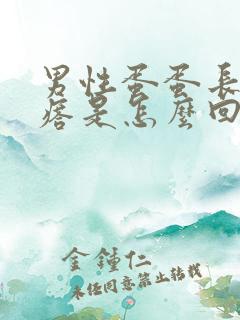 男性蛋蛋長
痞是怎麼回
金鍾仁
未经同意禁止转载